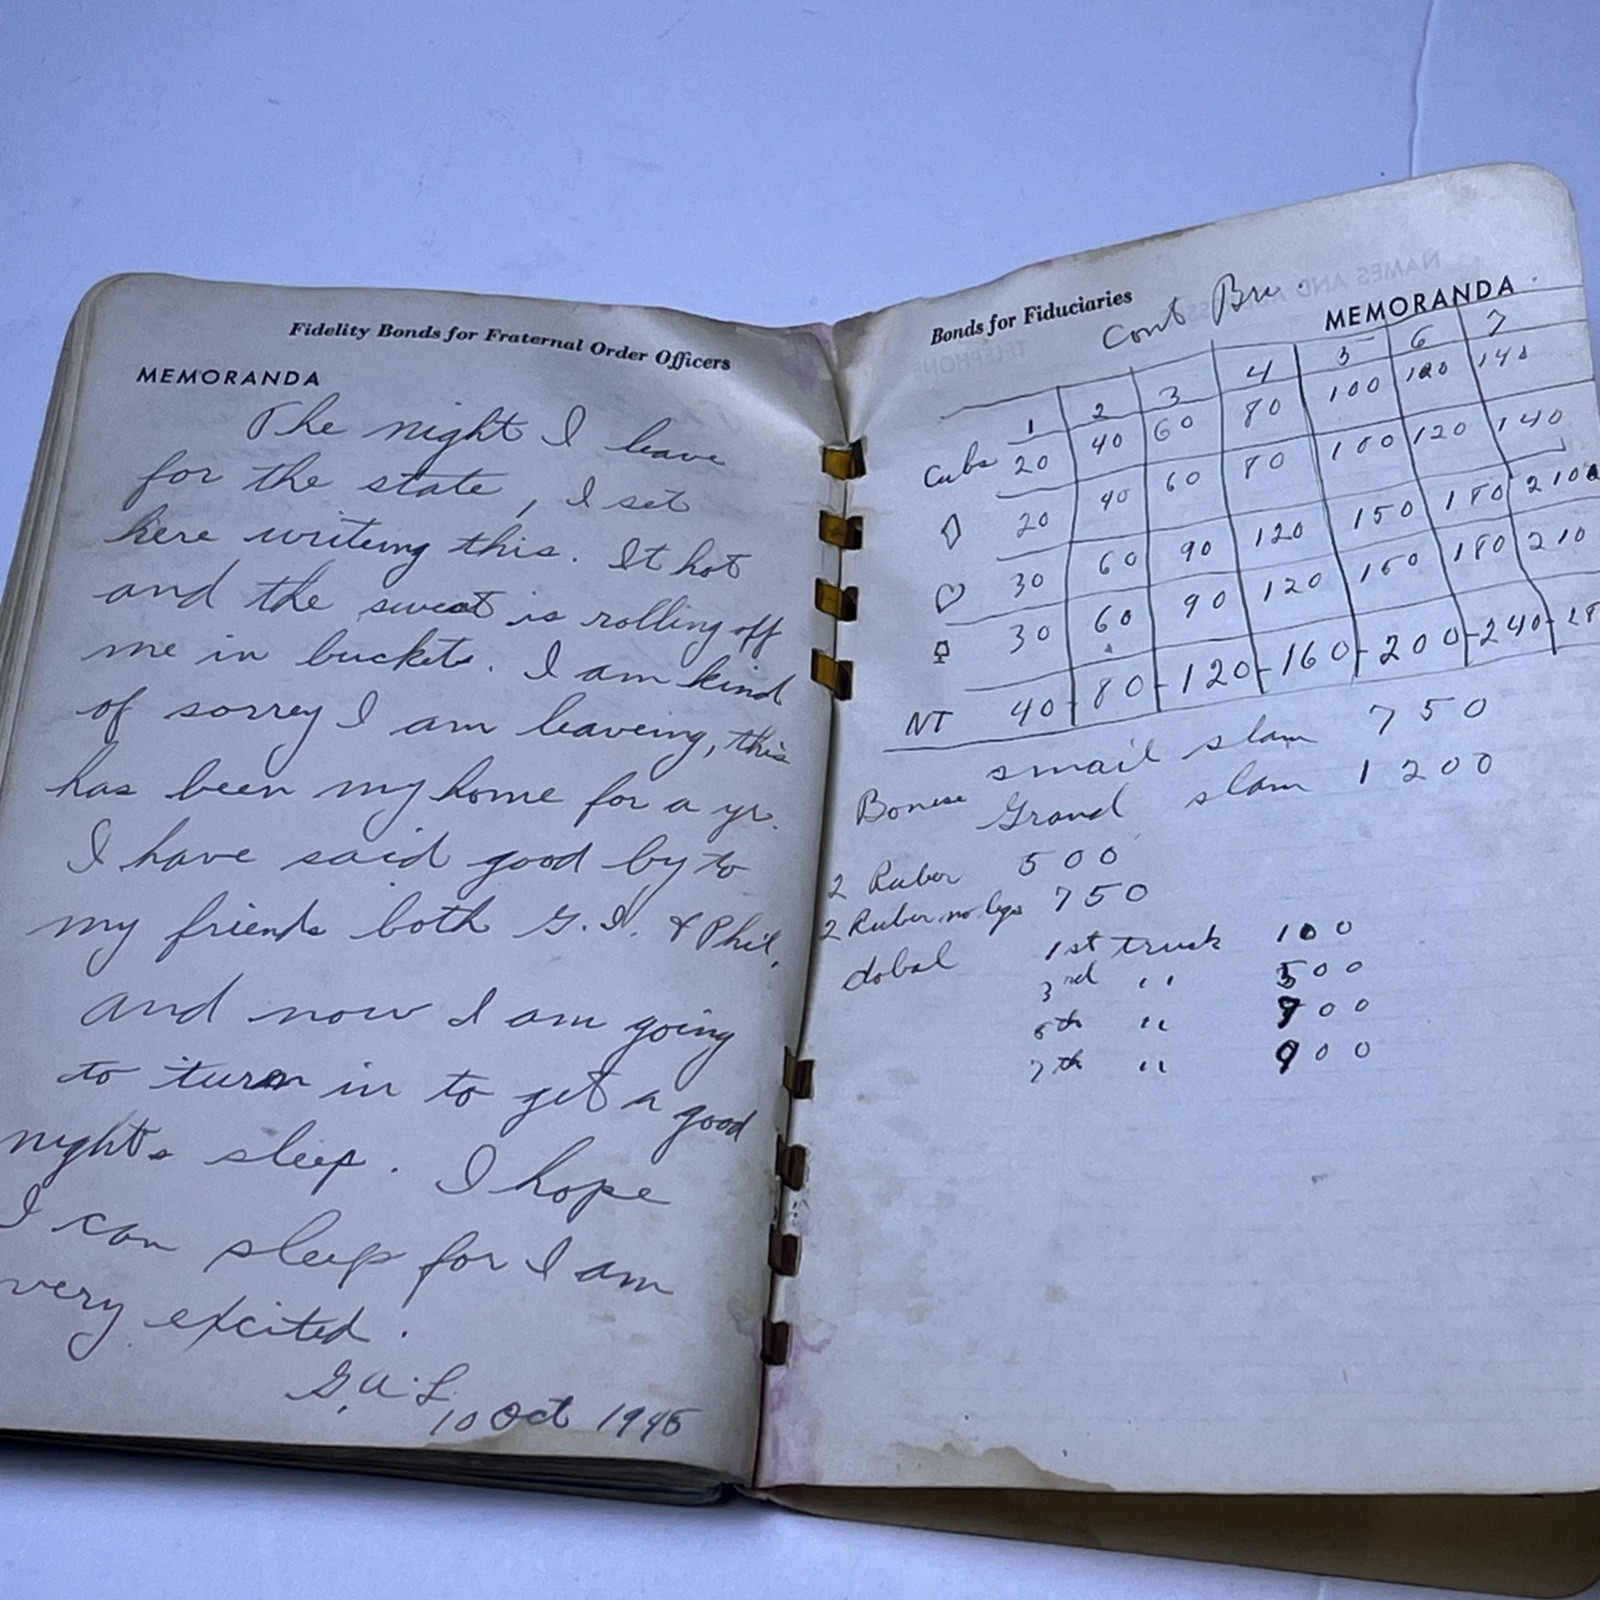 Fidelity Bonds for Fraternal Order Officers
MEMORANDA
The night I leave
for the state, I set
here writeing this. It hot
and the sweat is rolling off
me in buckets. I am kind
of sorrey I am leaveing, this
has been my home for a yr.
I have said good by to
my friends both G.I. & Phil,
and now I am going
to turn in to get a good
nights sleep. I hope
I can sleep for I am
very excited.
G.A.L.
10 Oct 1945
Bonds for Fiduciaries
MEMORANDA
Cont Bri.
1 2 3 4 5 6 7
Cubs 20 40 60 80 100 120 140
♢ 20 40 60 80 100 120 140
♡ 30 60 90 120 150 180 210
♤ 30 60 90 120 150 180 210
NT 40 - 80 - 120 - 160 - 200 - 240 - 28
small slam 750
Bonese Grand slam 1200
2 Ruber 500
2 Ruber no legs 750
dobal 1st truck 100
3rd " 500
5th " 700
7th " 900
NAMES AND ADDRESSES
TELEPHONE